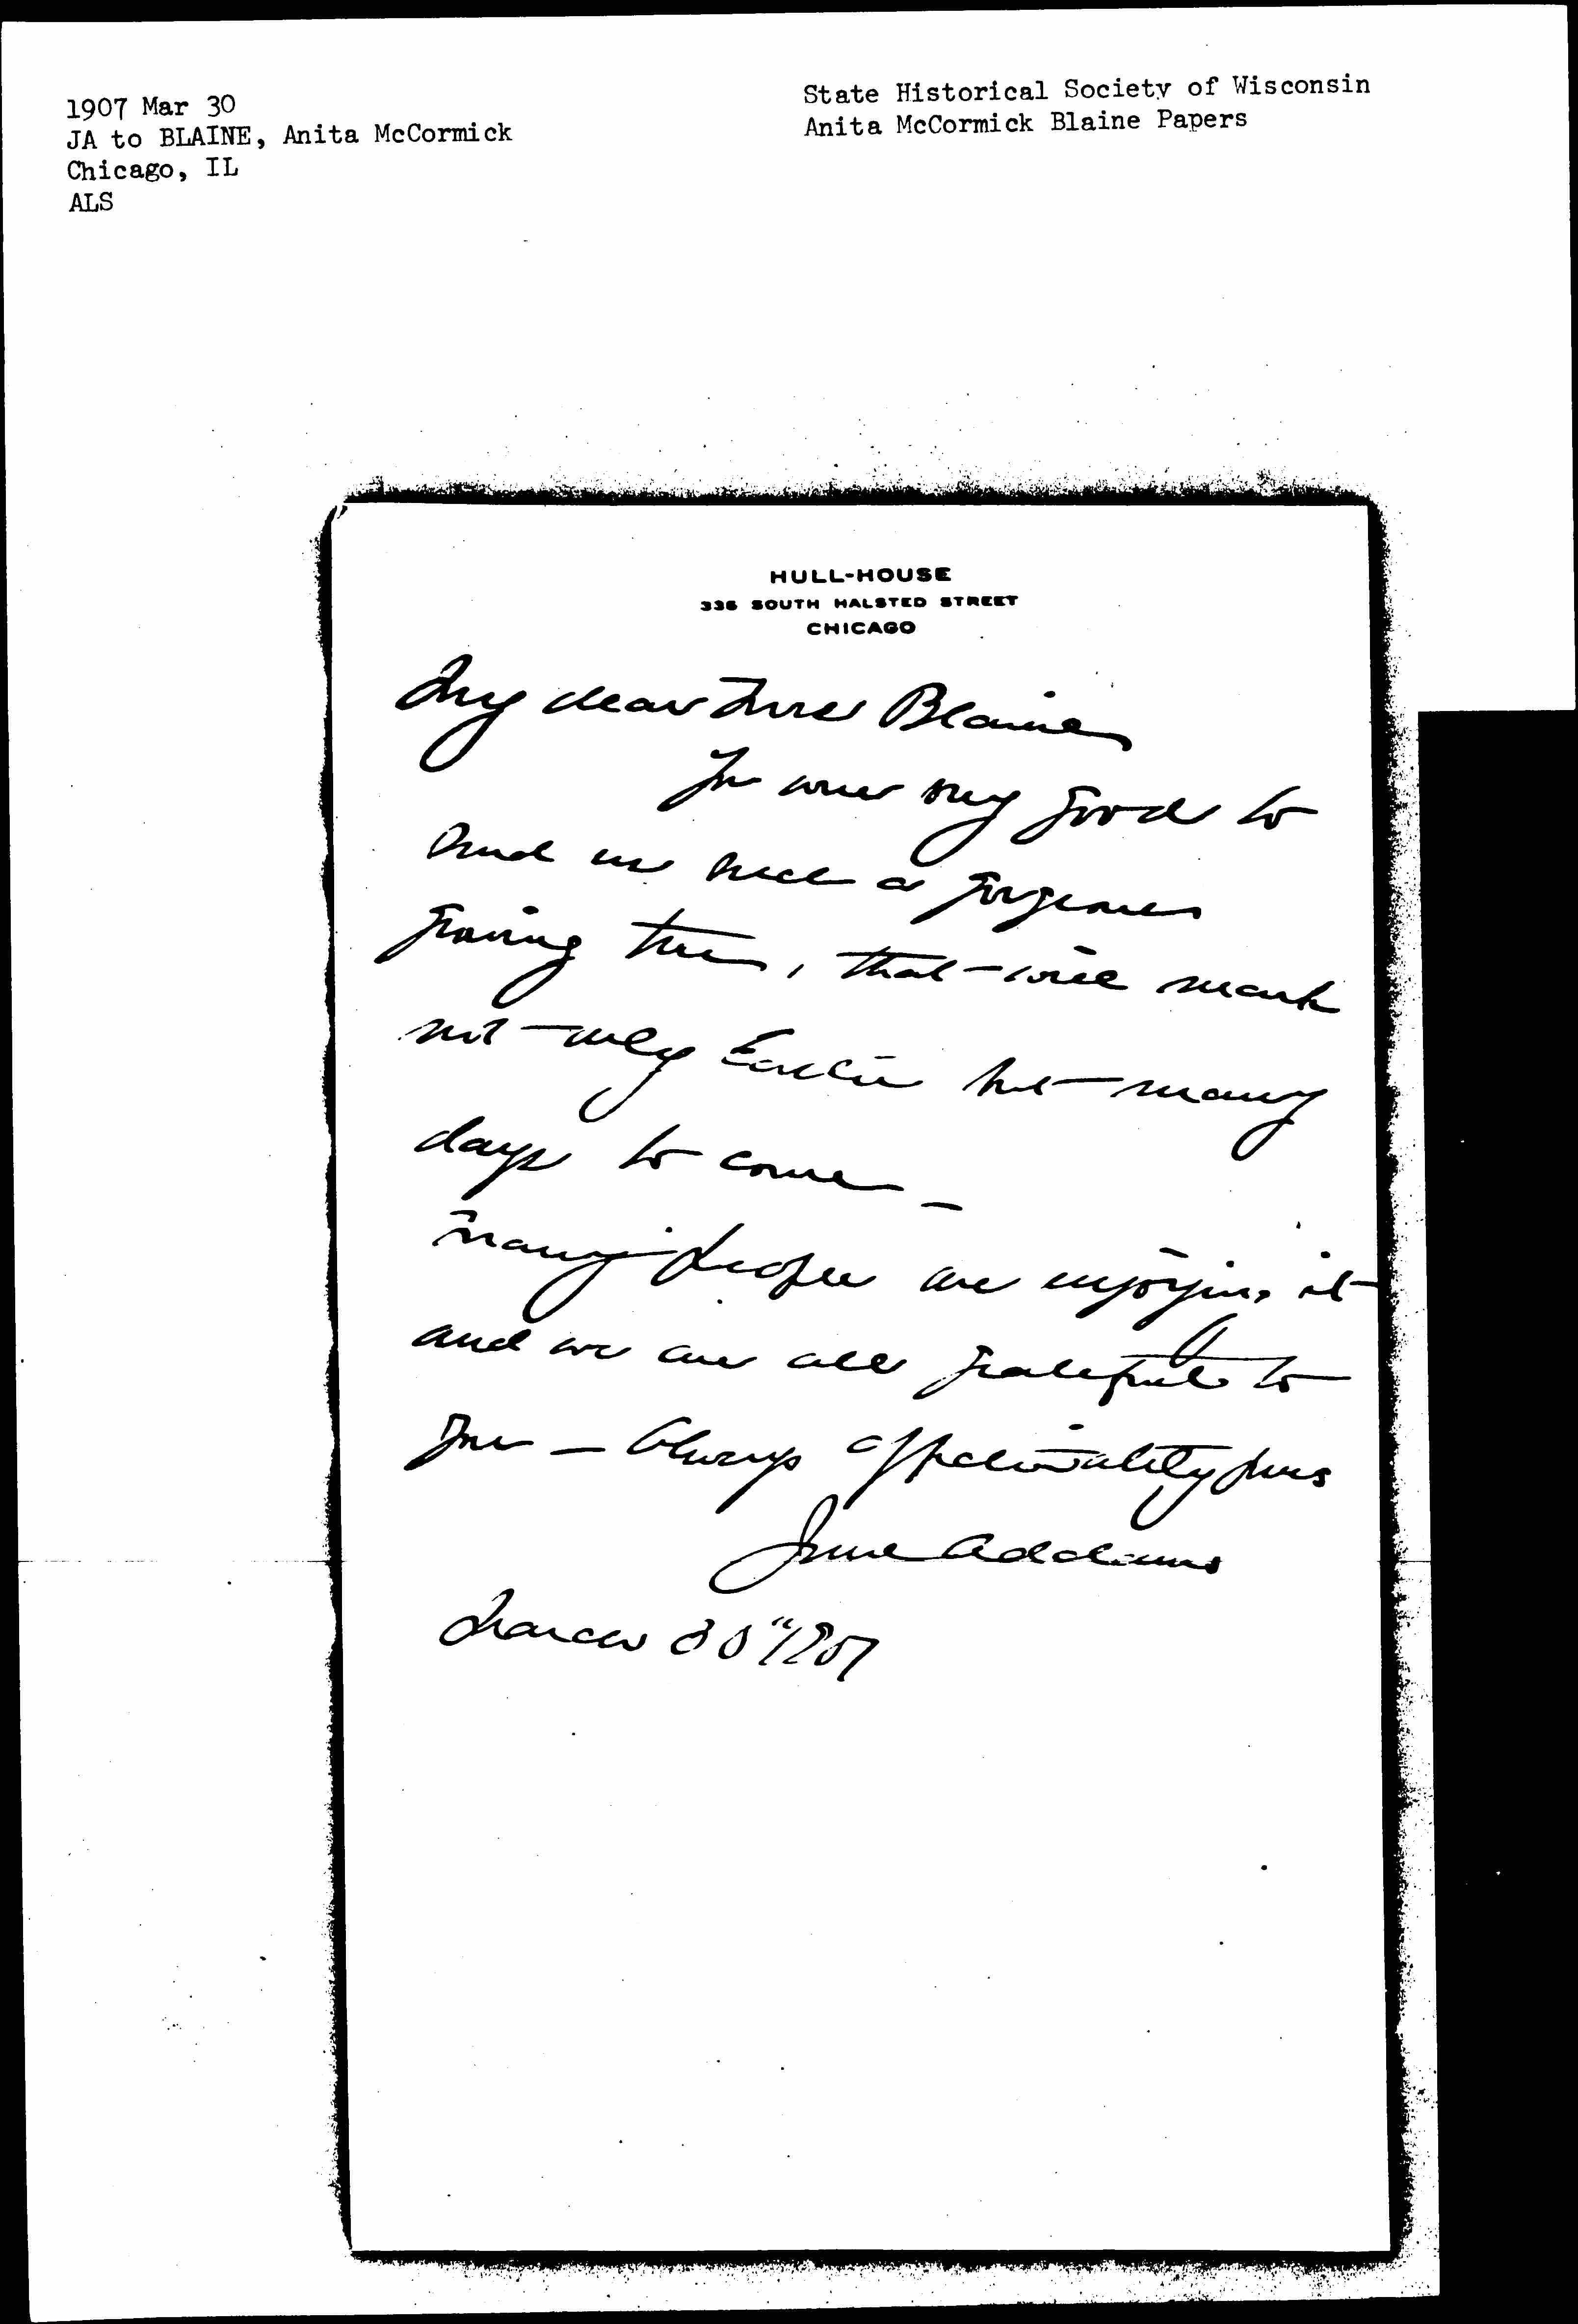 1907 Mar 30
JA to BLAINE, Anita McCormick
Chicago, IL
ALS
State Historical Society of Wisconsin
Anita McCormick Blaine Papers
HULL-HOUSE
335 SOUTH HALSTED STREET
CHICAGO
My dear Mrs Blaine
You were very good to
send us such a gorgeous
growing tree, that will mark
not only Easter but many
days to come –
Many people are enjoying it
and we are all grateful to
you – Always affectionately yours
Jane Addams
March 30" 1907